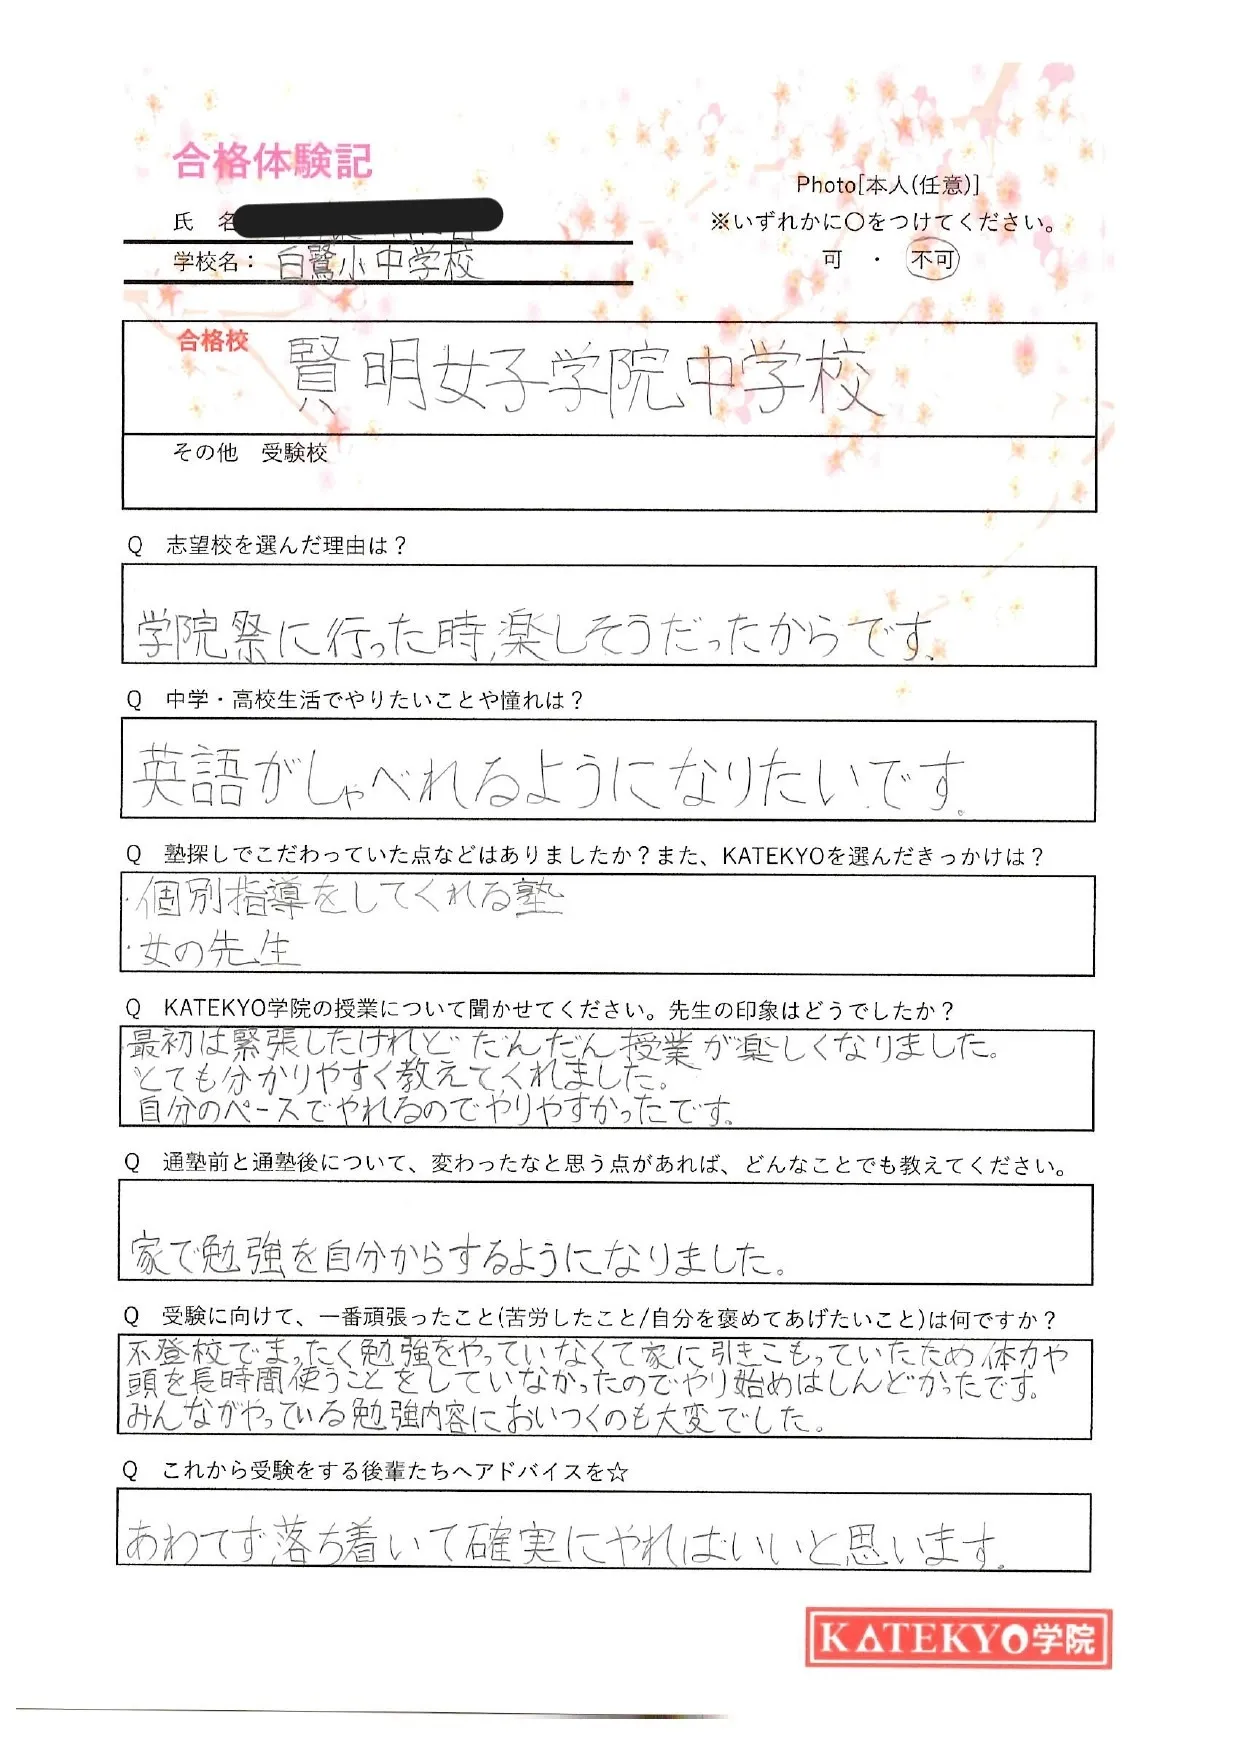 合格体験記
Photo[本人(任意)]
氏 名
※いずれかに〇をつけてください。
学校名： 白鷺小中学校
可 ・ 不可
合格校 賢明女子学院中学校
その他 受験校
Q 志望校を選んだ理由は？
学院祭に行った時、楽しそうだったからです。
Q 中学・高校生活でやりたいことや憧れは？
英語がしゃべれるようになりたいです。
Q 塾探しでこだわっていた点などはありましたか？また、KATEKYOを選んだきっかけは？
・個別指導をしてくれる塾
・女の先生
Q KATEKYO学院の授業について聞かせてください。先生の印象はどうでしたか？
最初は緊張したけれど だんだん授業が楽しくなりました。
とても分かりやすく教えてくれました。
自分のペースでやれるのでやりやすかったです。
Q 通塾前と通塾後について、変わったなと思う点があれば、どんなことでも教えてください。
家で勉強を自分からするようになりました。
Q 受験に向けて、一番頑張ったこと(苦労したこと/自分を褒めてあげたいこと)は何ですか？
不登校でまったく勉強をやっていなくて家に引きこもっていたため体力や
頭を長時間使うことをしていなかったのでやり始めはしんどかったです。
みんながやっている勉強内容においつくのも大変でした。
Q これから受験をする後輩たちへアドバイスを☆
あわてず落ち着いて確実にやればいいと思います。
KATEKYO学院